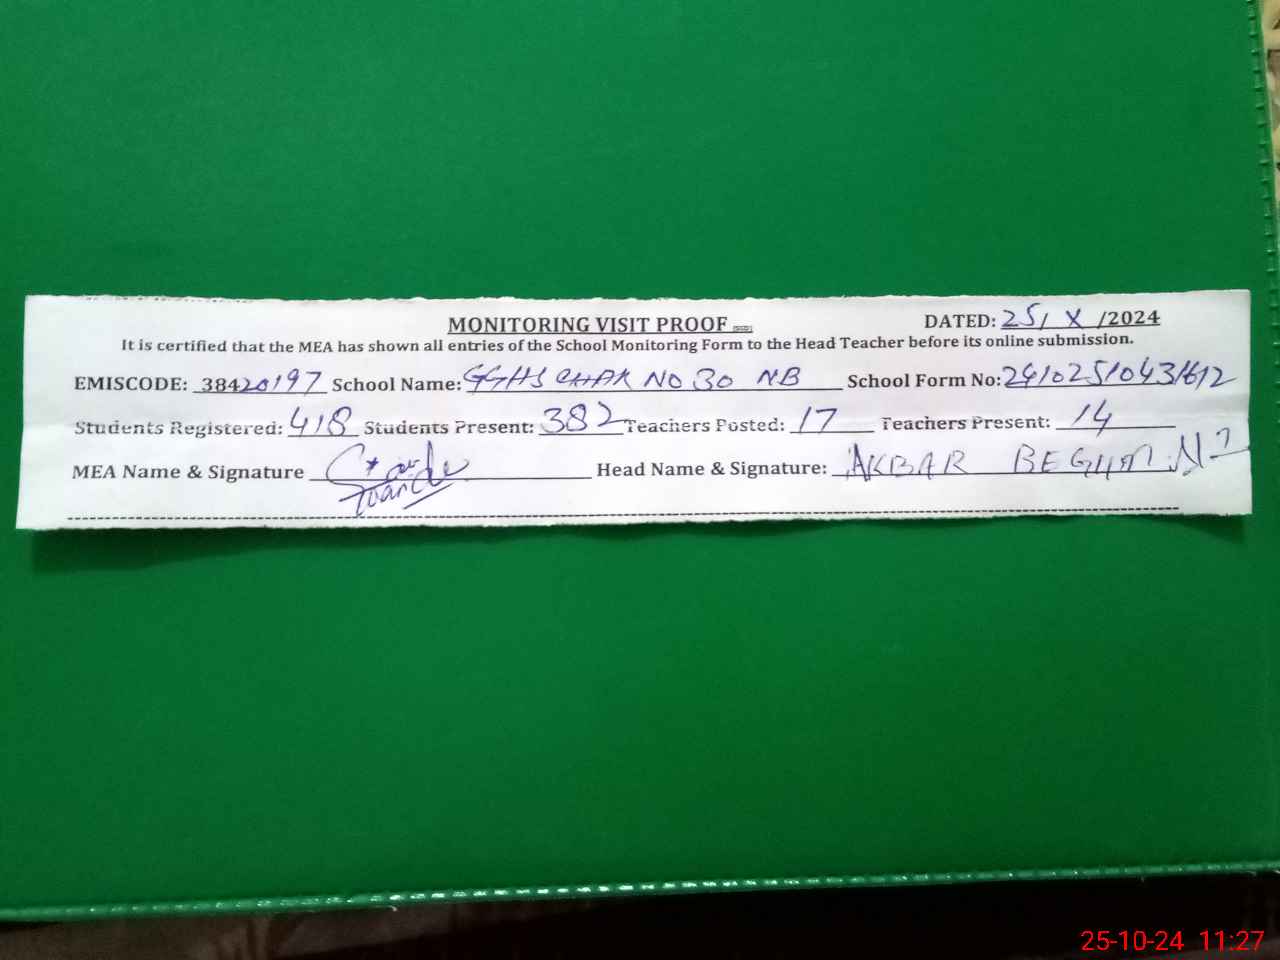 MONITORING VISIT PROOF DATED: 25/ X /2024
It is certified that the MEA has shown all entries of the School Monitoring Form to the Head Teacher before its online submission.
EMISCODE: 38420197 School Name: GGHS CHAK NO 30 NB School Form No: 24102510431612
Students Registered: 418 Students Present: 382 Teachers Posted: 17 Teachers Present: 14
MEA Name & Signature Head Name & Signature: AKBAR BEGUM
25-10-24 11:27